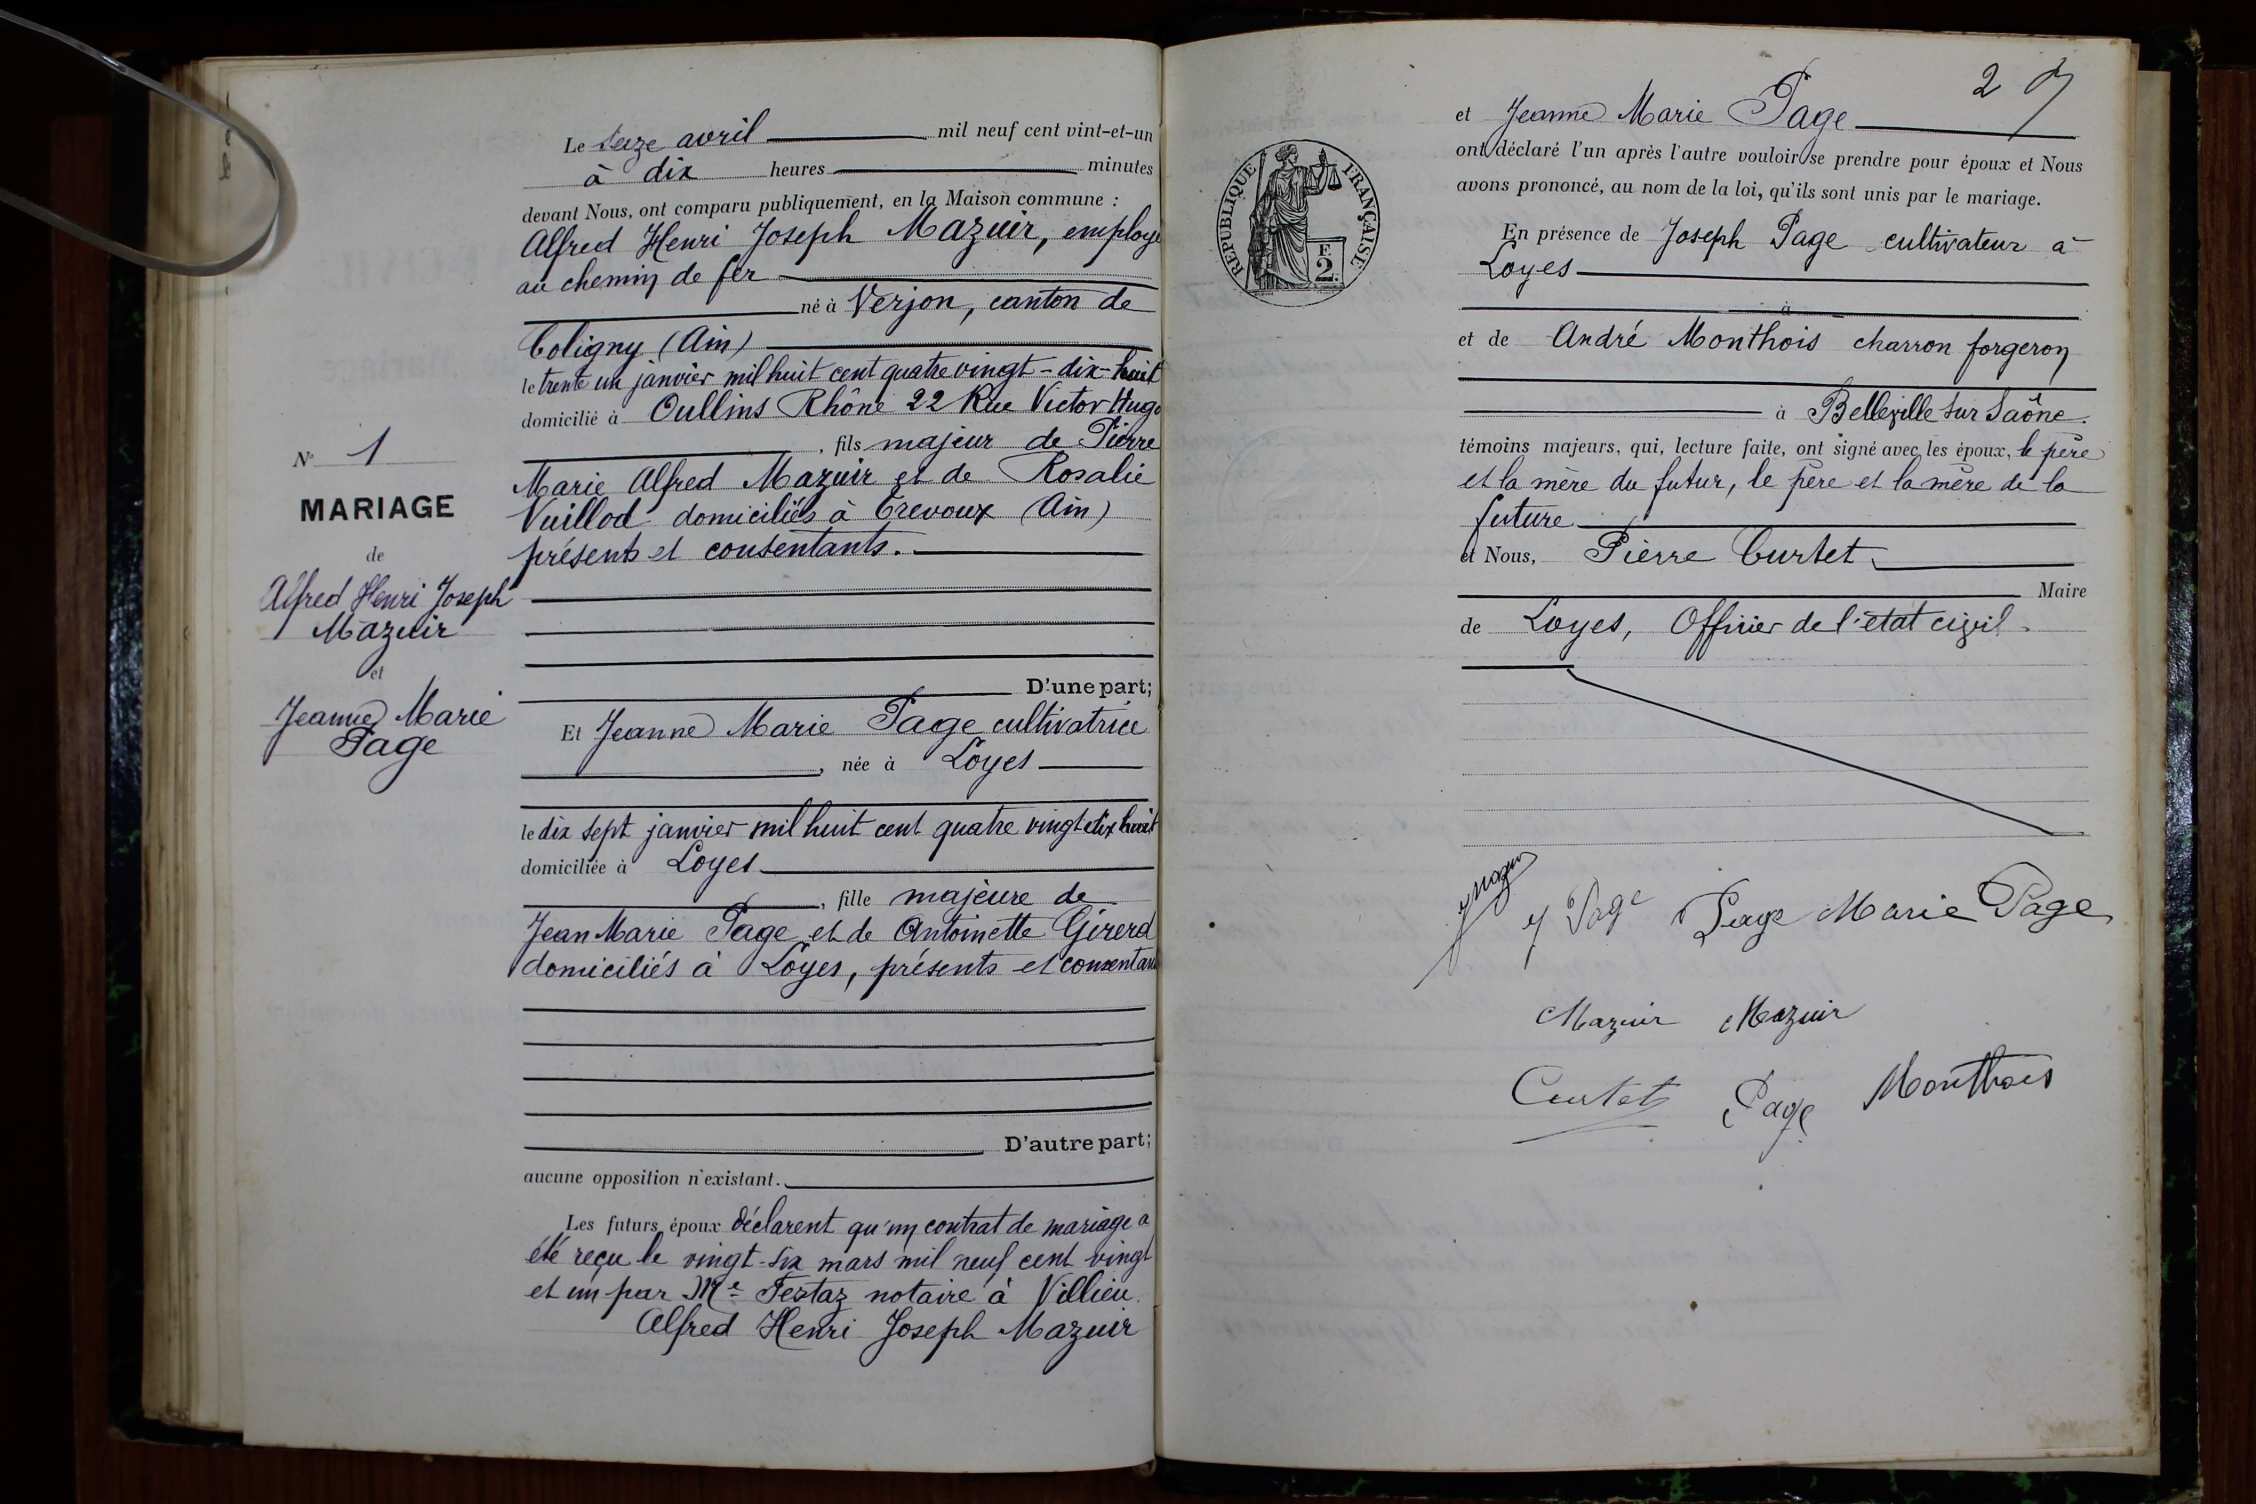 Le seize avril mil neuf cent vint-et-un
à dix heures minutes
devant Nous, ont comparu publiquement, en la Maison commune :
Alfred Henri Joseph Mazuir, employé
au chemin de fer
né à Verjon, canton de
Coligny (Ain)
le trente un janvier mil huit cent quatre vingt-dix-huit
domicilié à Oullins Rhône 22 Rue Victor Hugo
, fils majeur de Pierre
Marie Alfred Mazuir et de Rosalie
Vuillod domiciliés à Trevoux (Ain)
présents et consentants.
D'une part;
Et Jeanne Marie Page cultivatrice
, née à Loyes
le dix sept janvier mil huit cent quatre vingt dix huit
domiciliée à Loyes
, fille majeure de
Jean Marie Page et de Antoinette Girerd
domiciliés à Loyes, présents et consentants
D'autre part;
aucune opposition n'existant.
Les futurs époux déclarent qu'un contrat de mariage a
été reçu le vingt-six mars mil neuf cent vingt
et un par Me notaire à Villieu.
Alfred Henri Joseph Mazuir
N° 1
MARIAGE
de
Alfred Henri Joseph
Mazuir
et
Jeanne Marie
Page
2
RÉPUBLIQUE FRANÇAISE
F
2
et Jeanne Marie Page
ont déclaré l'un après l'autre vouloir se prendre pour époux et Nous
avons prononcé, au nom de la loi, qu'ils sont unis par le mariage.
En présence de Joseph Page cultivateur à
Loyes
à
et de André Monthois charron forgeron
à Belleville sur Saône.
témoins majeurs, qui, lecture faite, ont signé avec les époux, le père
et la mère du futur, le père et la mère de la
future
et Nous, Pierre Curtet
Maire
de Loyes, Officier de l'état civil.
J Page Page Marie Page
Mazuir Mazuir
Curtet Page Monthois